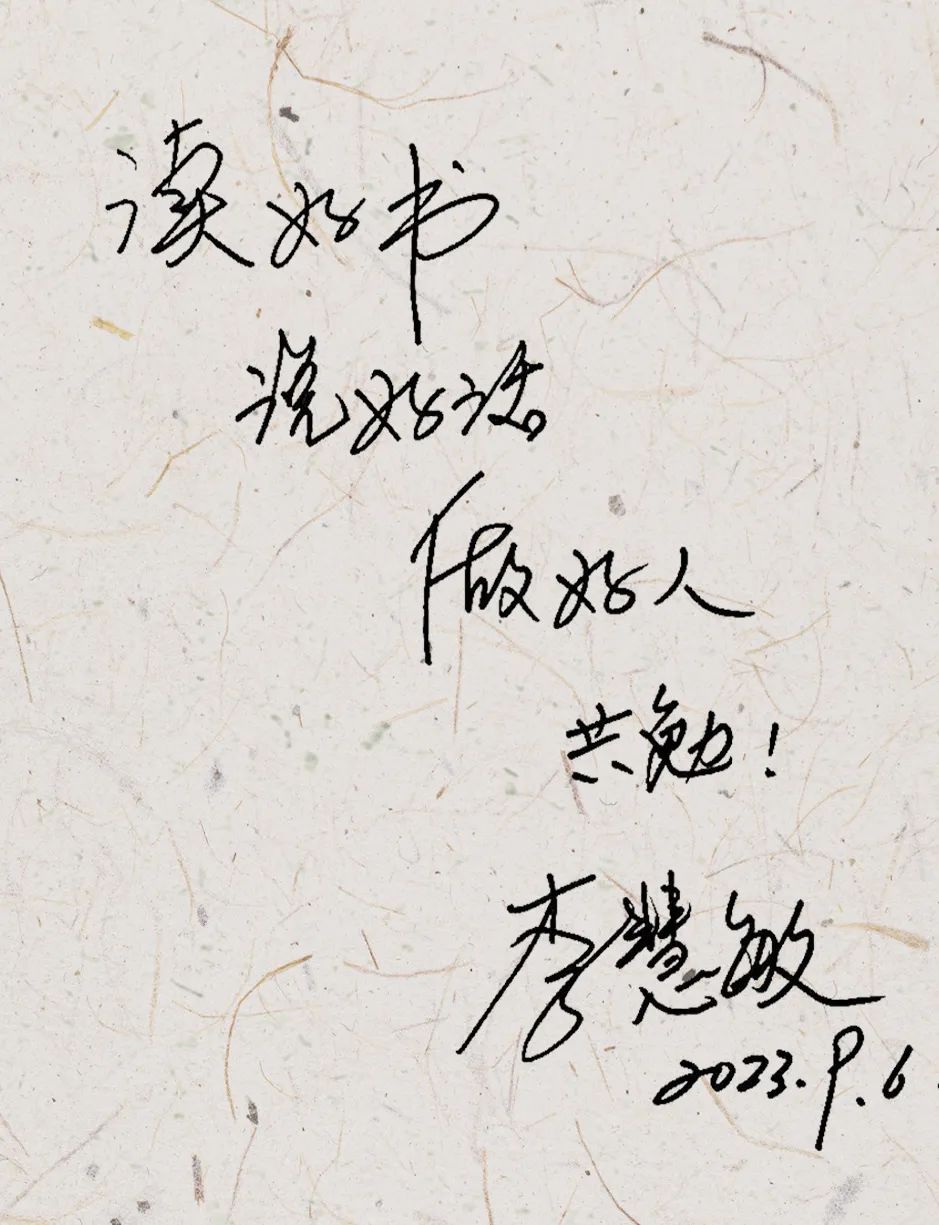 读好书
说好话
做好人
共勉!
李慧敏
2023.9.6